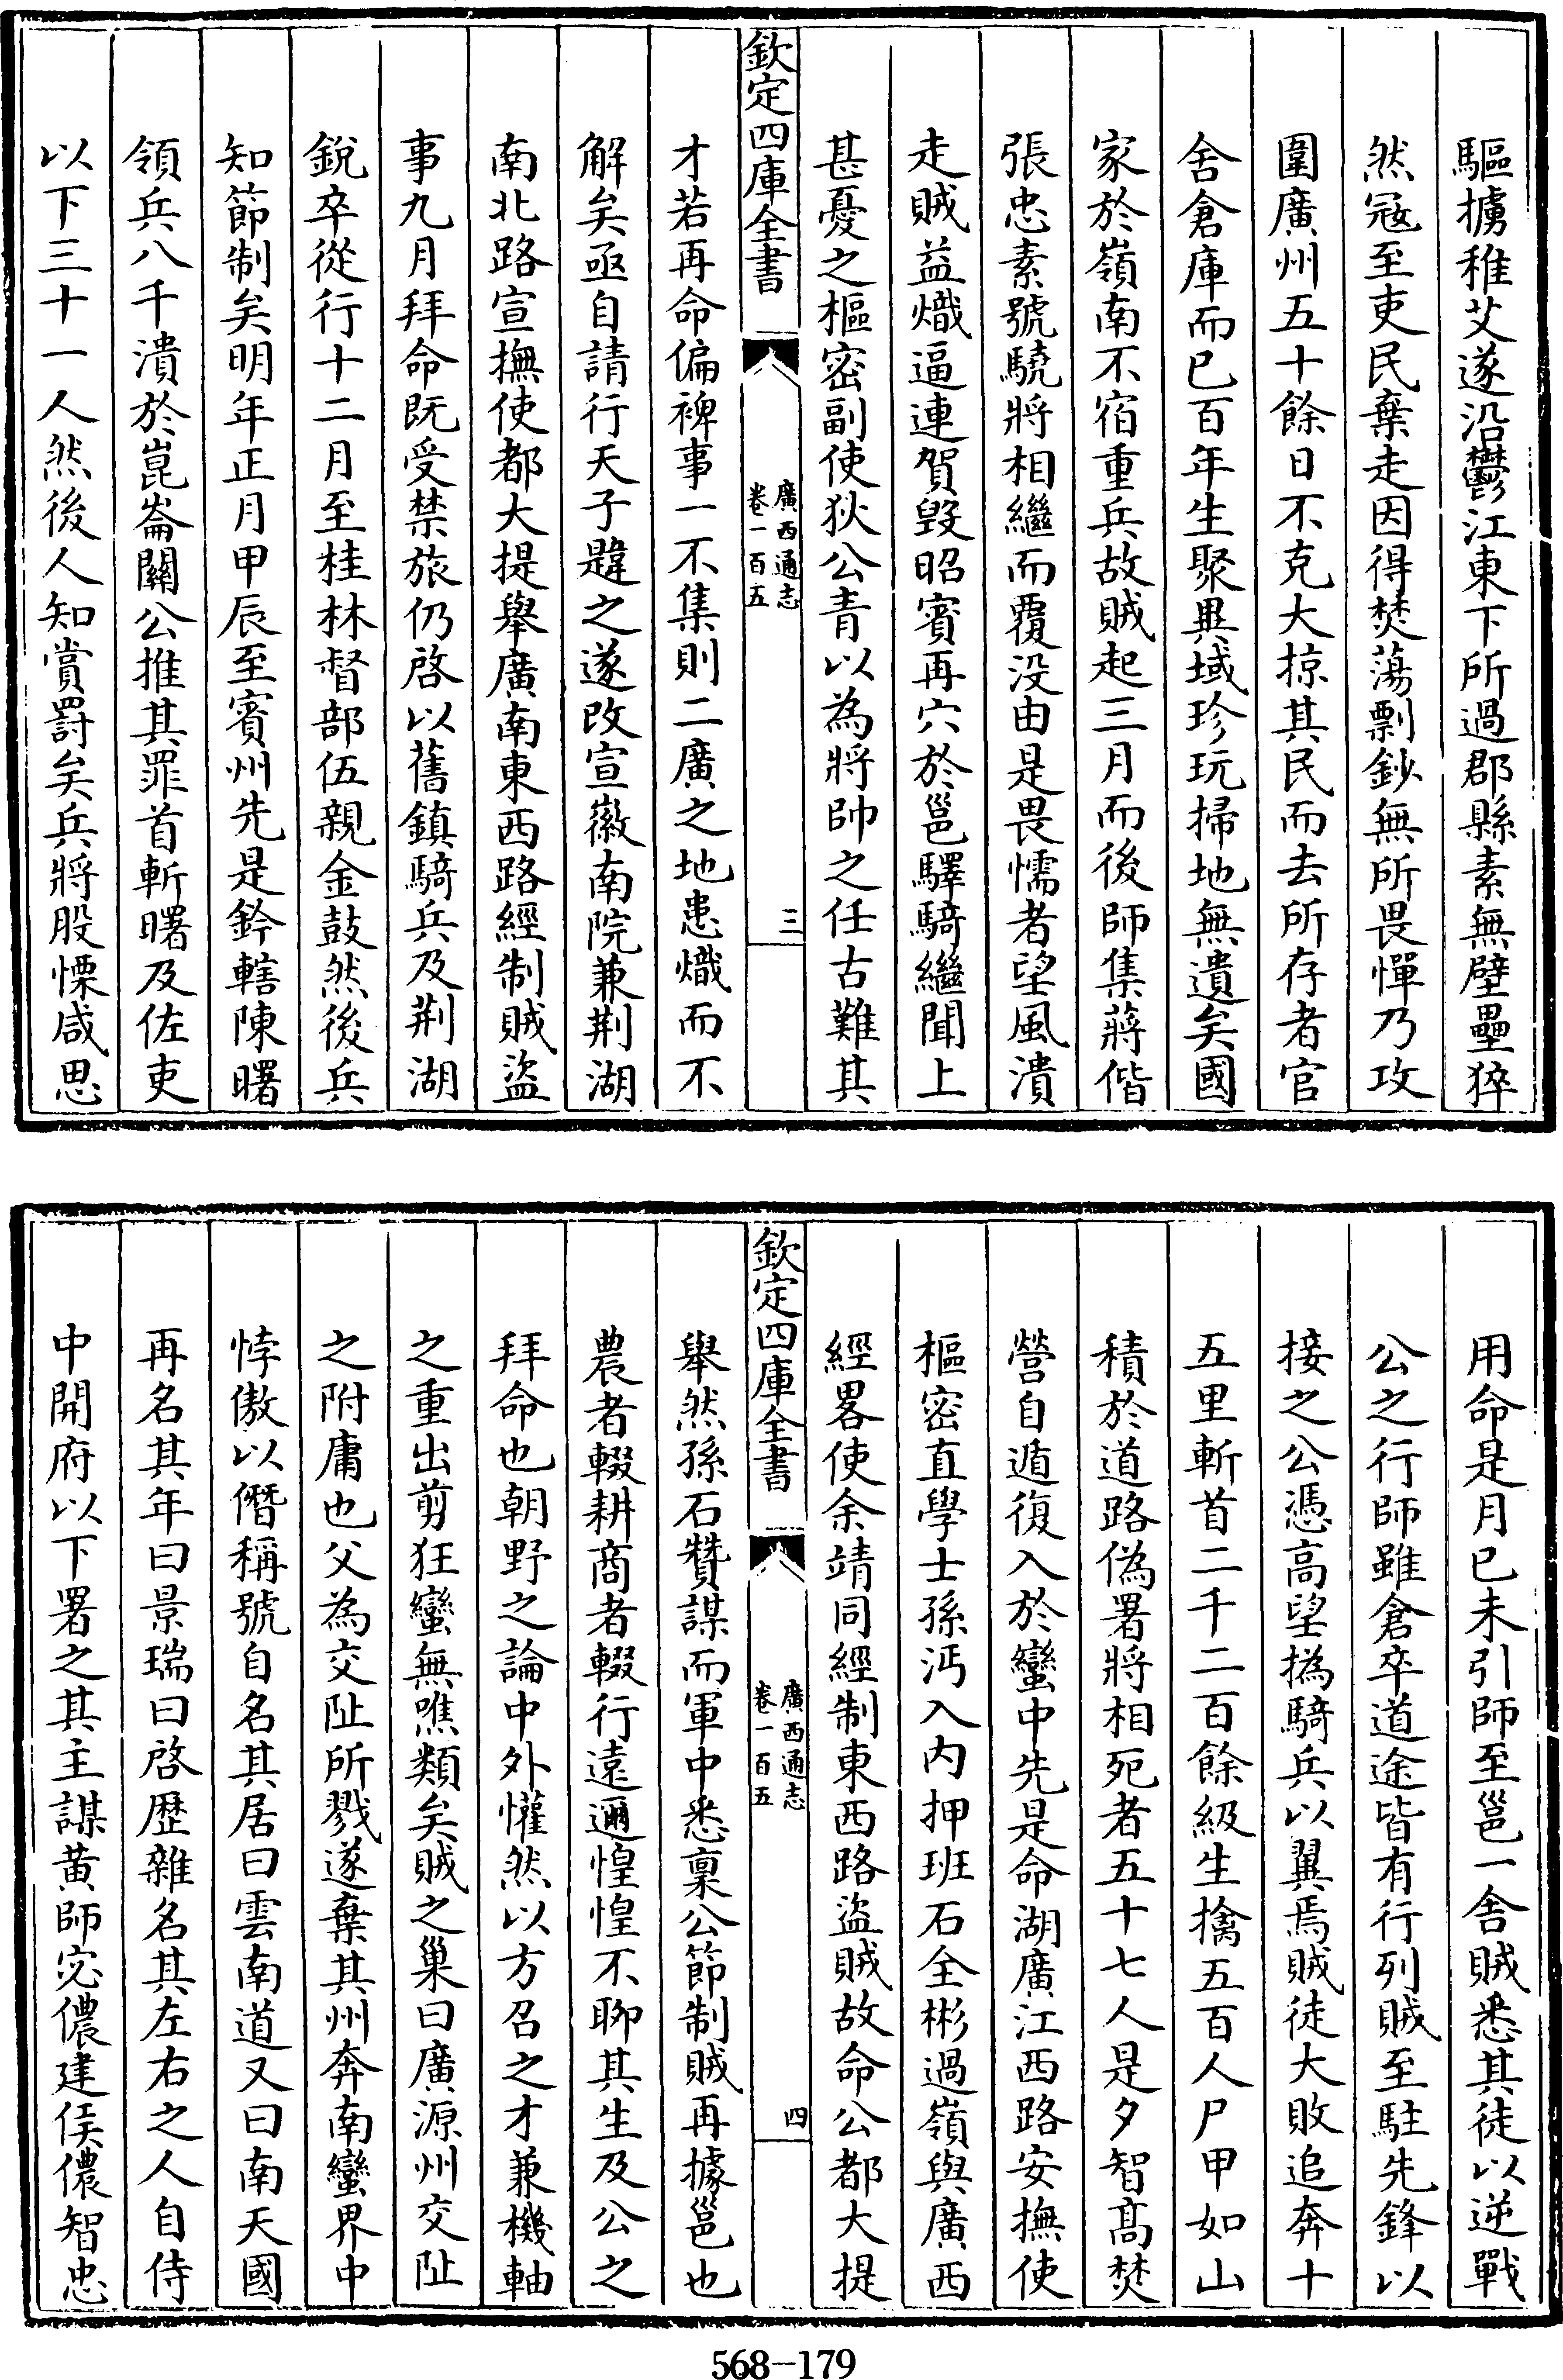 驅擄稚艾遂沿鬱江東下所過郡縣素無壁壘猝
然寇至吏民棄走因得焚蕩剽鈔無所畏憚乃攻
圍廣州五十餘日不克大掠其民而去所存者官
舍倉庫而已百年生聚異域珍玩掃地無遺矣國
家於嶺南不宿重兵故賊起三月而後師集蔣偕
張忠素號驍將相繼而覆没由是畏懦者望風潰
走賊益熾逼連賀毀昭賓再穴於邕驛騎繼聞上
甚憂之樞密副使狄公青以為將帥之任古難其
欽定四庫全書
廣西通志
卷一百五
三
才若再命偏裨事一不集則二廣之地患熾而不
解矣亟自請行天子韙之遂改宣徽南院兼荆湖
南北路宣撫使都大提舉廣南東西路經制賊盜
事九月拜命既受禁旅仍啓以舊鎮騎兵及荆湖
銳卒從行十二月至桂林督部伍親金鼓然後兵
知節制矣明年正月甲辰至賓州先是鈐轄陳曙
領兵八千潰於崑崙關公推其罪首斬曙及佐吏
以下三十一人然後人知賞罰矣兵將股慄咸思
用命是月已未引師至邕一舍賊悉其徒以逆戰
公之行師雖倉卒道途皆有行列賊至駐先鋒以
接之公憑高望撝騎兵以翼焉賊徒大敗追奔十
五里斬首二千二百餘級生擒五百人尸甲如山
積於道路偽署將相死者五十七人是夕智髙焚
營自遁復入於蠻中先是命湖廣江西路安撫使
樞密直學士孫沔入内押班石全彬過嶺與廣西
經畧使余靖同經制東西路盜賊故命公都大提
欽定四庫全書
廣西通志
卷一百五
四
舉然孫石贊謀而軍中悉稟公節制賊再據邕也
農者輟耕商者輟行遠邇惶惶不聊其生及公之
拜命也朝野之論中外懽然以方召之才兼機軸
之重出剪狂蠻無噍類矣賊之巢曰廣源州交阯
之附庸也父為交阯所戮遂棄其州奔南蠻界中
悖傲以僭稱號自名其居曰雲南道又曰南天國
再名其年曰景瑞曰啓歷雜名其左右之人自侍
中開府以下署之其主謀黄師宓儂建侯儂智忠
568-179